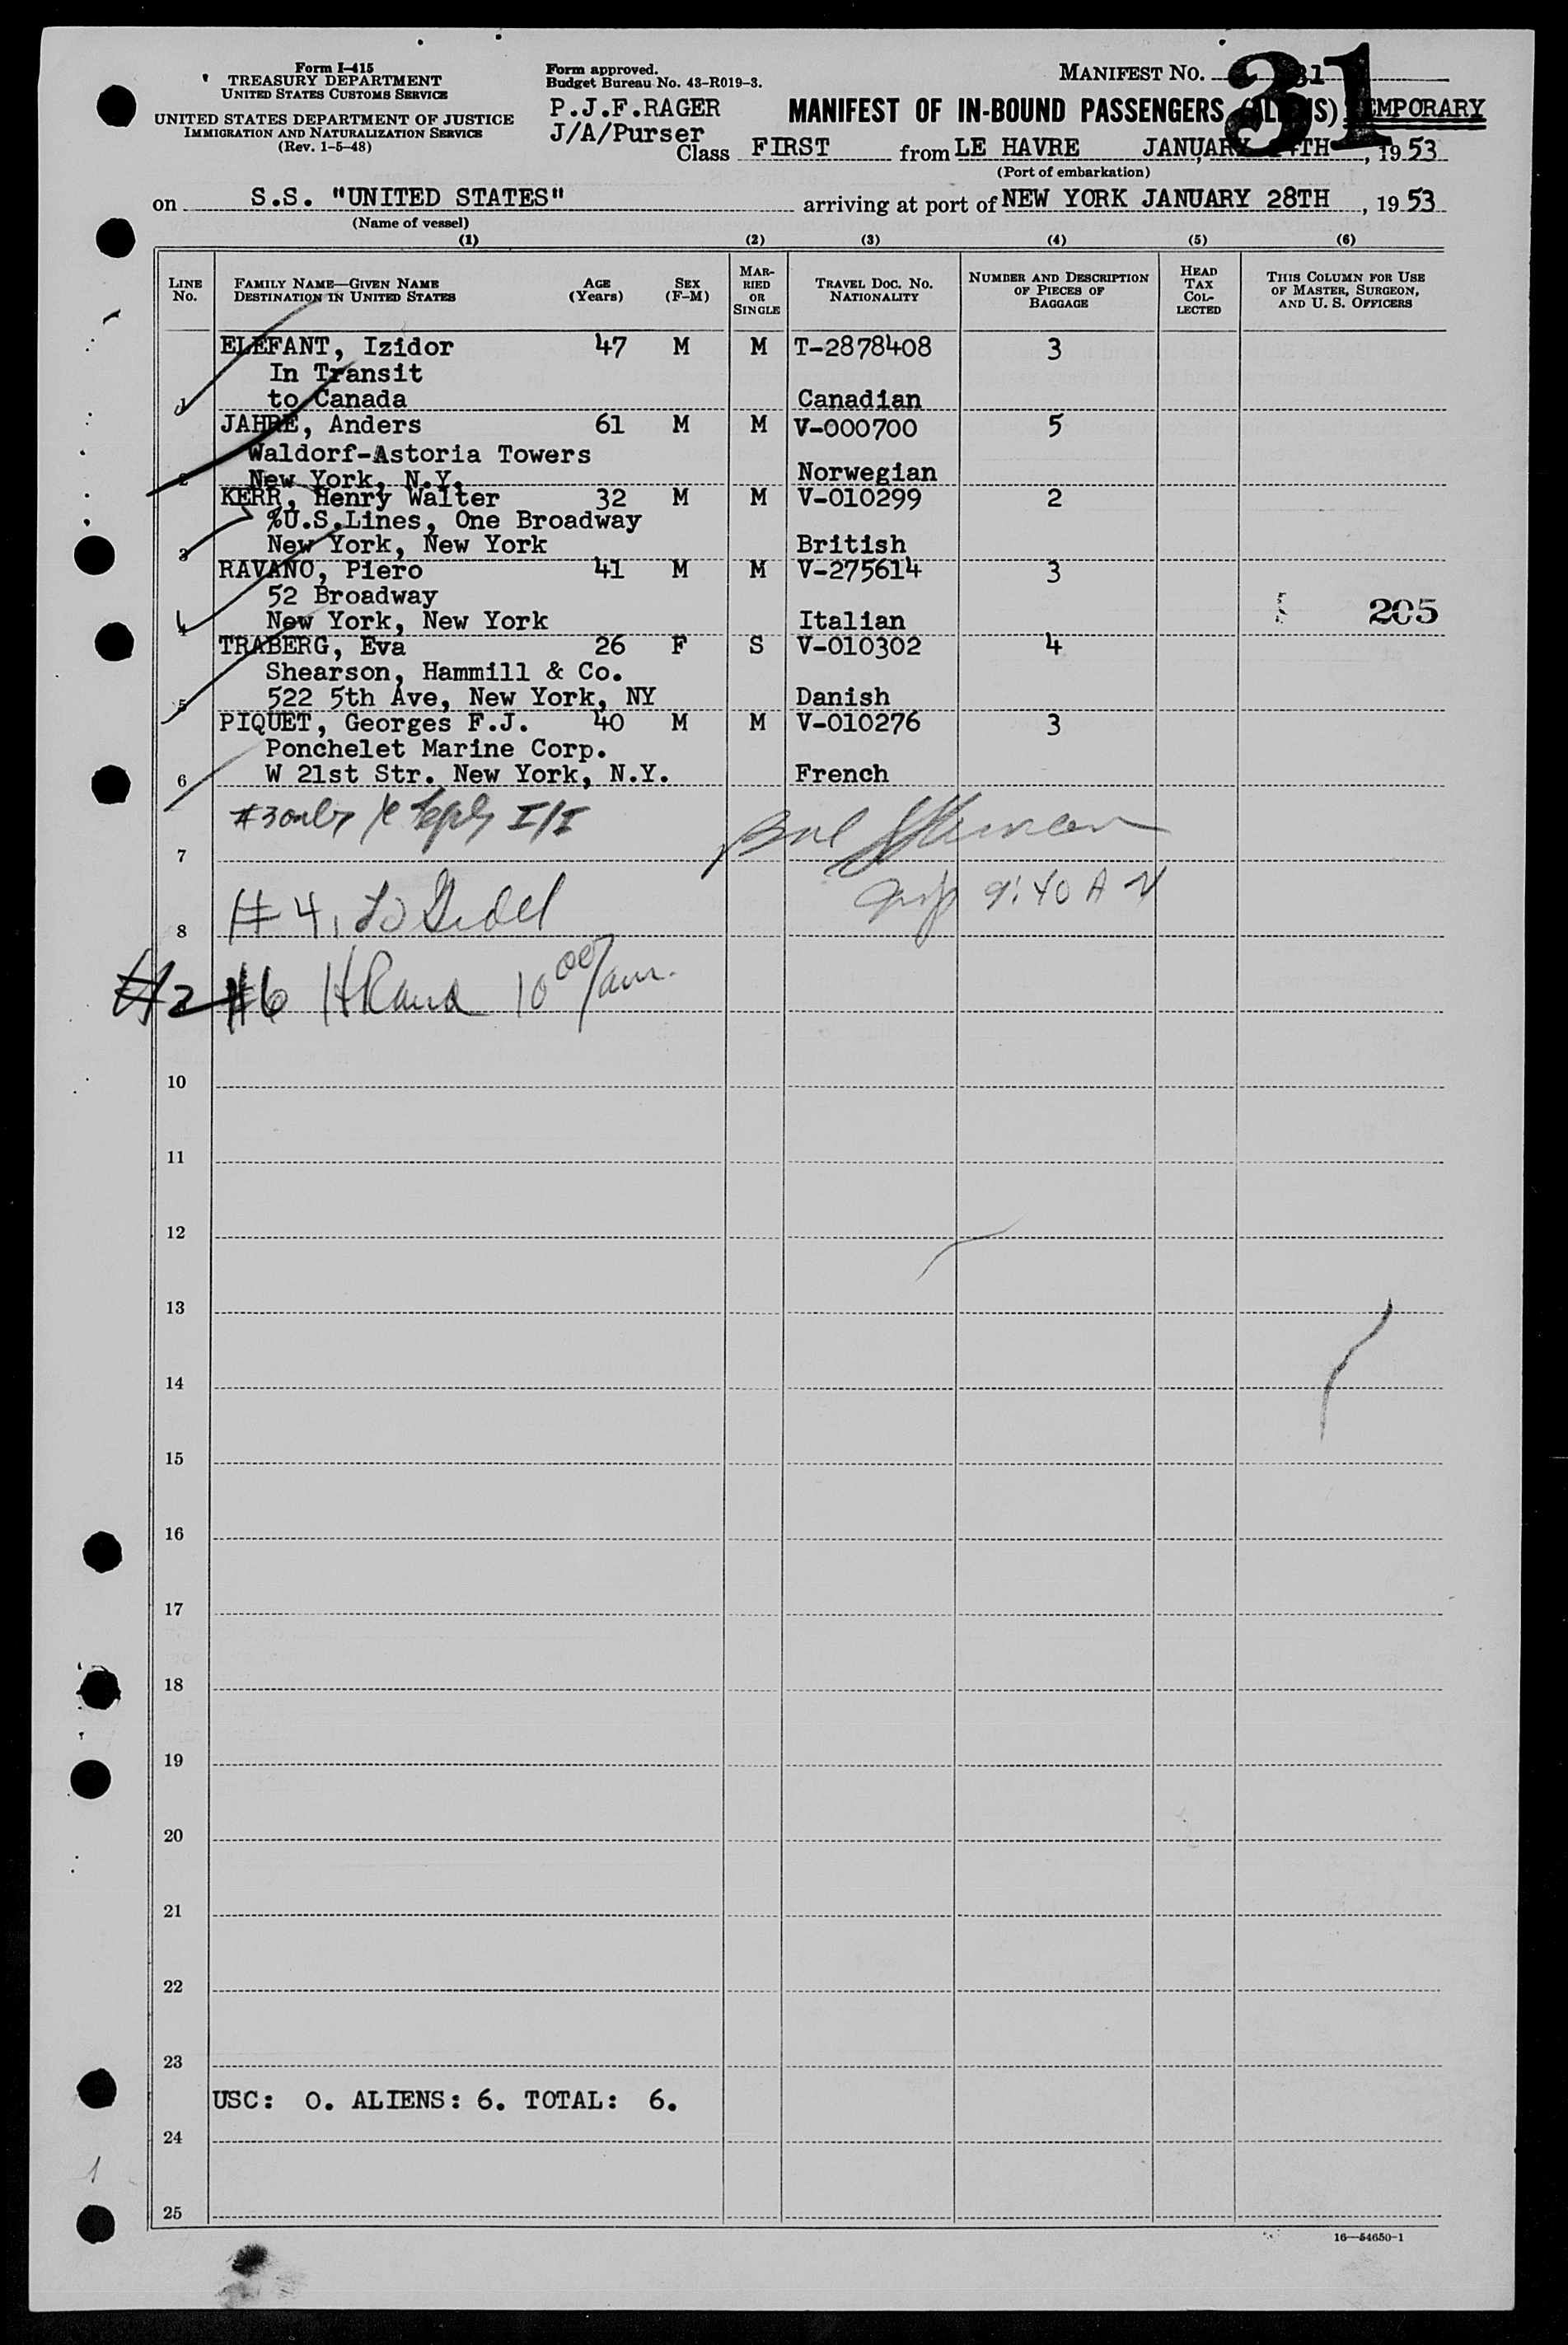 Form I-415
TREASURY DEPARTMENT
UNITED STATES CUSTOMS SERVICE
UNITED STATES DEPARTMENT OF JUSTICE
IMMIGRATION AND NATURALIZATION SERVICE
(Rev. 1-5-48)
Form approved.
Budget Bureau No. 43-R019-3.
P.J.F.RAGER
J/A/Purser
MANIFEST NO. 31
31
MANIFEST OF IN-BOUND PASSENGERS (ALIENS) TEMPORARY
Class FIRST from LE HAVRE JANUARY TH, 1953
(Port of embarkation)
on S.S. "UNITED STATES" arriving at port of NEW YORK JANUARY 28TH, 1953
(Name of vessel)
(1) (2) (3) (4) (5) (6)
LINE No. FAMILY NAME—GIVEN NAME DESTINATION IN UNITED STATES AGE (Years) SEX (F-M) MARRIED OR SINGLE TRAVEL DOC. NO. NATIONALITY NUMBER AND DESCRIPTION OF PIECES OF BAGGAGE HEAD TAX COLLECTED THIS COLUMN FOR USE OF MASTER, SURGEON, AND U. S. OFFICERS
ELEFANT, Izidor 47 M M T-2878408 3
In Transit
1 to Canada Canadian
JAHRE, Anders 61 M M V-000700 5
Waldorf-Astoria Towers
2 New York, N.Y. Norwegian
KERR, Henry Walter 32 M M V-010299 2
%U.S.Lines, One Broadway
3 New York, New York British
RAVANO, Piero 41 M M V-275614 3
52 Broadway
4 New York, New York Italian 205
TRABERG, Eva 26 F S V-010302 4
Shearson, Hammill & Co.
5 522 5th Ave, New York, NY Danish
PIQUET, Georges F.J. 40 M M V-010276 3
Ponchelet Marine Corp.
6 W 21st Str. New York, N.Y. French
#3 only I/I
7
9:40 A
8 # 4,
#2 #6 10 00/am.
10
11
12
13
14
15
16
17
18
19
20
21
22
23
USC: 0. ALIENS: 6. TOTAL: 6.
24
25
16—54650-1